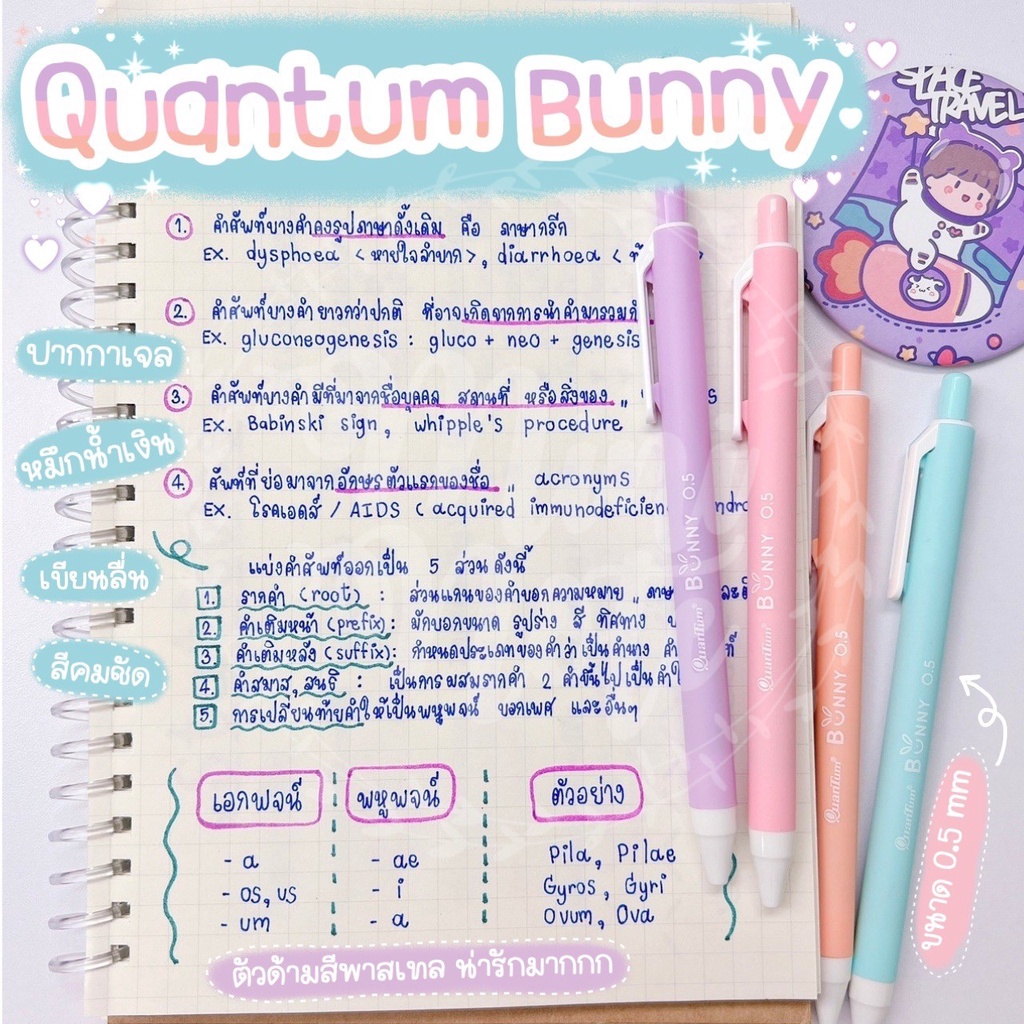 Quantum Bunny
SPACE
TRAVEL
1. คำศัพท์บางคำคงรูปภาษาดั้งเดิม คือ ภาษากรีก
Ex. dysphoea <หายใจลำบาก>, diarrhoea <
2. คำศัพท์บางคำยาวกว่าปกติ ที่อาจเกิดจากการนำคำมารวมกั
Ex. gluconeogenesis : gluco + neo + genesis
3. คำศัพท์บางคำมีที่มาจากชื่อบุคคล สถานที่ หรือสิ่งของ
Ex. Babinski sign, whipple's procedure
4. ศัพท์ที่ย่อมาจากอักษรตัวแรกของชื่อ „ acronyms
Ex. โรคเอดส์ / AIDS (acquired immunodeficien
แบ่งคำศัพท์ออกเป็น 5 ส่วน ดังนี้
1. รากคำ (root) : ส่วนแกนของคำบอกความหมาย „
2. คำเติมหน้า (prefix): มักบอกขนาด รูปร่าง สี ทิศทาง
3. คำเติมหลัง (suffix): กำหนดประเภทของคำว่าเป็นคำนาม
4. คำสมาส, สนธิ : เป็นการผสมรากคำ 2 คำขึ้นไปเป็นคำใ
5. การเปลี่ยนท้ายคำให้เป็นพหูพจน์ บอกเพศ และอื่นๆ
เอกพจน์ พหูพจน์ ตัวอย่าง
- a - ae Pila, Pilae
- os, us - i Gyros, Gyri
- um - a Ovum, Ova
ปากกาเจล
หมึกน้ำเงิน
เขียนลื่น
สีคมชัด
Quantum BUNNY 0.5
Quantum BUNNY 0.5
Quantum BUNNY 0.5
Quantum BUNNY 0.5
ขนาด 0.5 mm
ตัวด้ามสีพาสเทล น่ารักมากกก